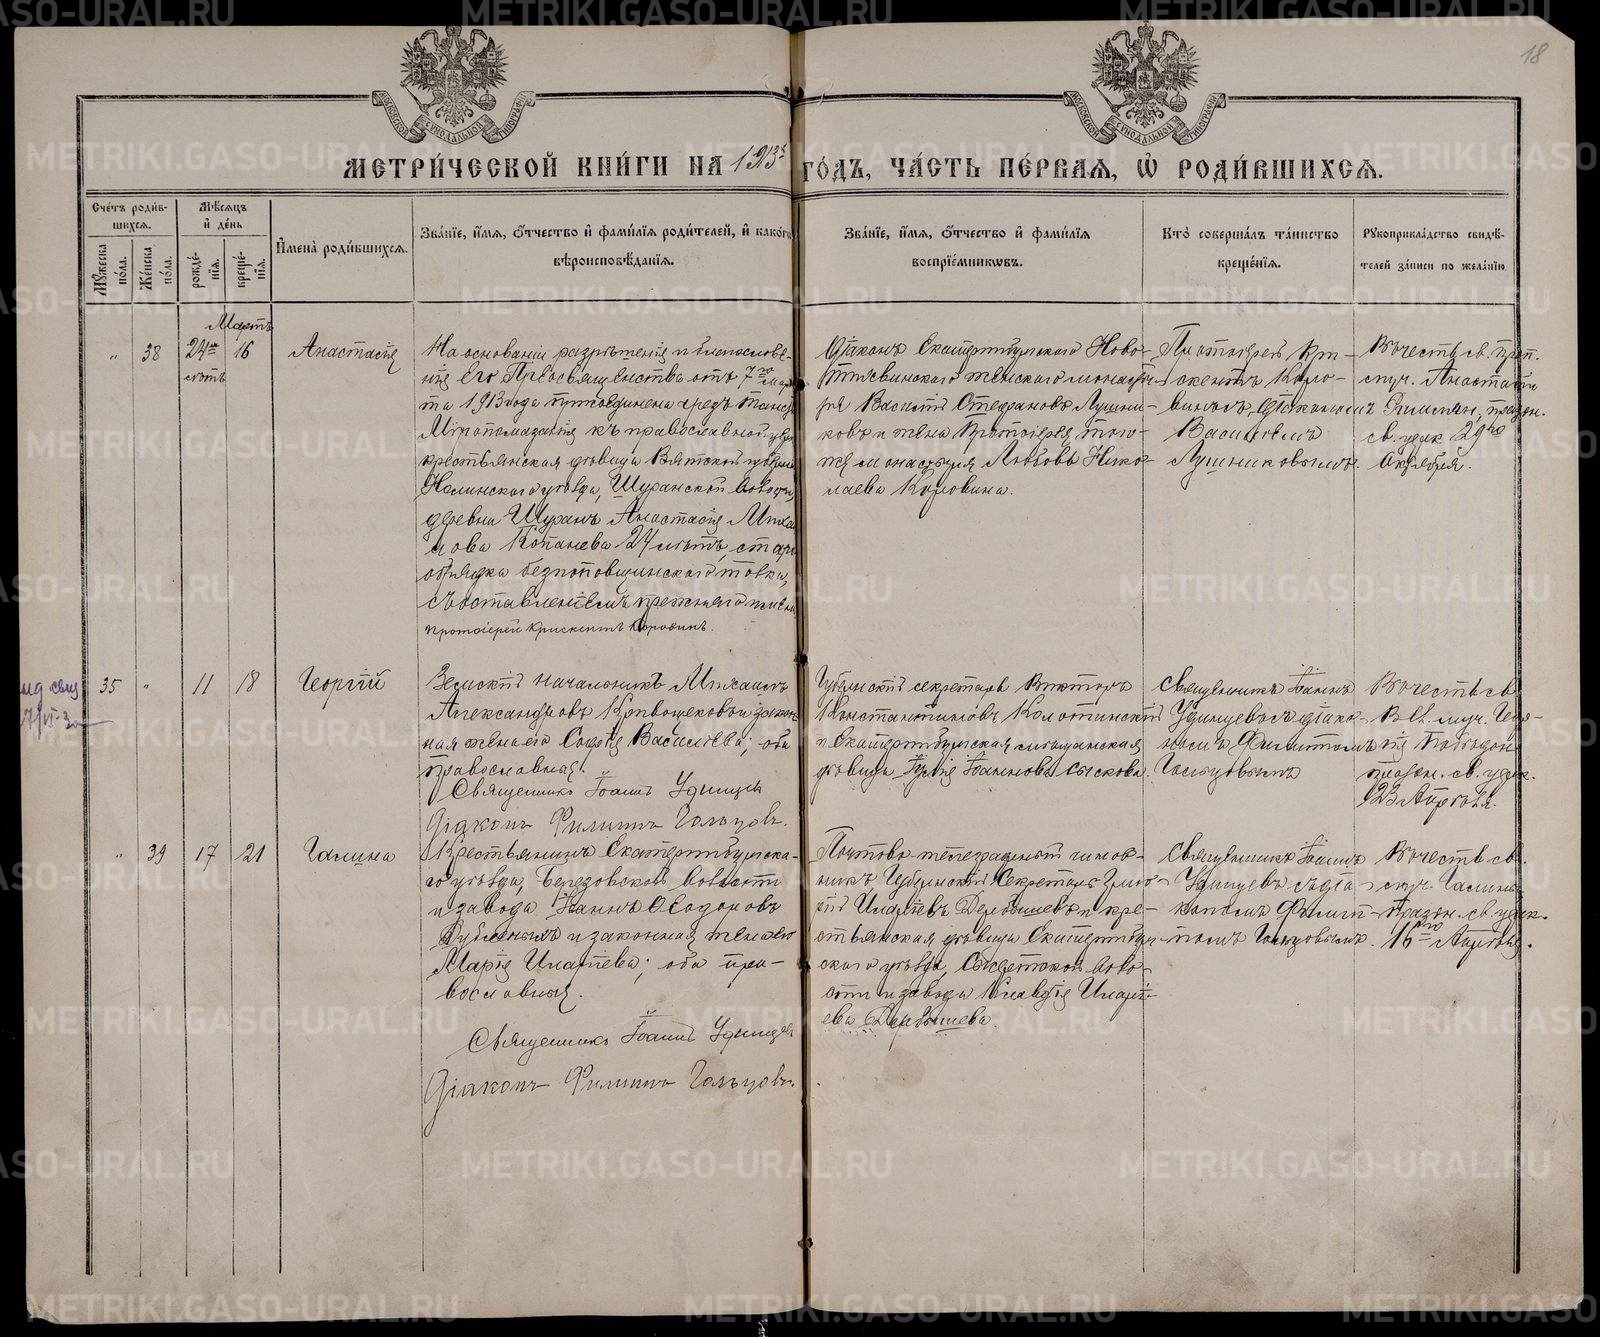 18
МЕТРИ́ЧЕСКОЙ КНИ́ГИ НА 1913й ГО́ДЪ, ЧА́СТЬ ПЕ́РВАѦ, Ѡ҆ РОДИ́ВШИХСѦ.
Сче́тъ роди́в-
шихсѧ.
Мꙋ́жеска по́ла.
Же́нска по́ла.
Мѣ́сѧцъ и҆ де́нь
рожде́-
нїѧ.
креще́-
нїѧ.
И҆мена̀ роди́вшихсѧ.
Зва́нїе, и҆́мѧ, ѻ҆́тчество и҆ фами́лїѧ роди́телей, и҆ како́гѡ
вѣроисповѣ́данїѧ.
Зва́нїе, и҆́мѧ, ѻ҆́тчество и҆ фами́лїѧ
воспрїе́мникѡвъ.
Кто̀ соверша́лъ та́инство
креще́нїѧ.
Рꙋкоприкла́дство свидѣ́-
телей за́писи по жела́нїю.
Мартъ
„ 38 24 лѣтъ 16 Анастасія
На основаніи разрѣшенія и благослове-
нія Его Преосвященства отъ 7го Мар-
та 1913 года присоединена чрезъ таинст.
Мѵропомазанія къ православной церк.
крестьянская дѣвица Вятской губерніи
Нолинскаго уѣзда, Шуранской волости,
деревни Шуранъ Анастасія Михаи
лова Копанева 24 лѣтъ, старо
обрядка безпоповщинскаго толка,
съ оставленіемъ прежняго имени
Протоіерей Крискентъ Коровинъ.
Діаконъ Екатеринбургскаго Ново-
Тихвинскаго женскаго монасты-
ря Василій Стефановъ Лушни-
ковъ и жена Протоіерея того-
же монастыря Любовь Нико-
лаева Коровина.
Протоіерей Кри-
скентъ Коро-
винъ съ діакономъ
Василіемъ
Лушниковымъ.
Въ честь св. преп.
муч. Анастасіи
Римлян., праздн.
св. церк 29го
Октября.
35 „ 11 18 Георгій
Земскій начальникъ Михаилъ
Александровъ Кривощековъ и закон-
ная жена его Софія Васильева; оба
православные.
Священникъ Іоаннъ Удинцевъ
Діаконъ Филиппъ Гальцовъ.
Губернскій секретарь Викторъ
Константиновъ Колотинскій
и Екатеринбургская мѣщанская
дѣвица Іоаннова Сыскова.
Священникъ Іоаннъ
Удинцевъ съ діако-
номъ Филиппомъ
Гальцовымъ
Въ честь св.
Вел. муч. Геор-
гія Побѣдон.
праздн. св. церк.
23 Апрѣля.
„ 39 17 21 Галина
Крестьянинъ Екатеринбургска-
го уѣзда, Березовской волости
и завода Іоаннъ Ѳеодоровъ
и законная жена его
Марія Игнатіева; оба пра-
вославные.
Священникъ Іоаннъ Удинцевъ
Діаконъ Филиппъ Гальцовъ.
Почтово-телеграфный чинов-
никъ, Губернскій Секретарь
Дерябишевъ и кре-
стьянская дѣвица Екатеринбург-
скаго уѣзда, Сысертской воло-
сти и завода Клавдія
ева Дерябышева.
Священникъ Іоаннъ
Удинцевъ съ діа-
кономъ Филип-
помъ Гальцовымъ.
Въ честь св.
муч. Галины
праздн. св. церк.
16го Апрѣля.